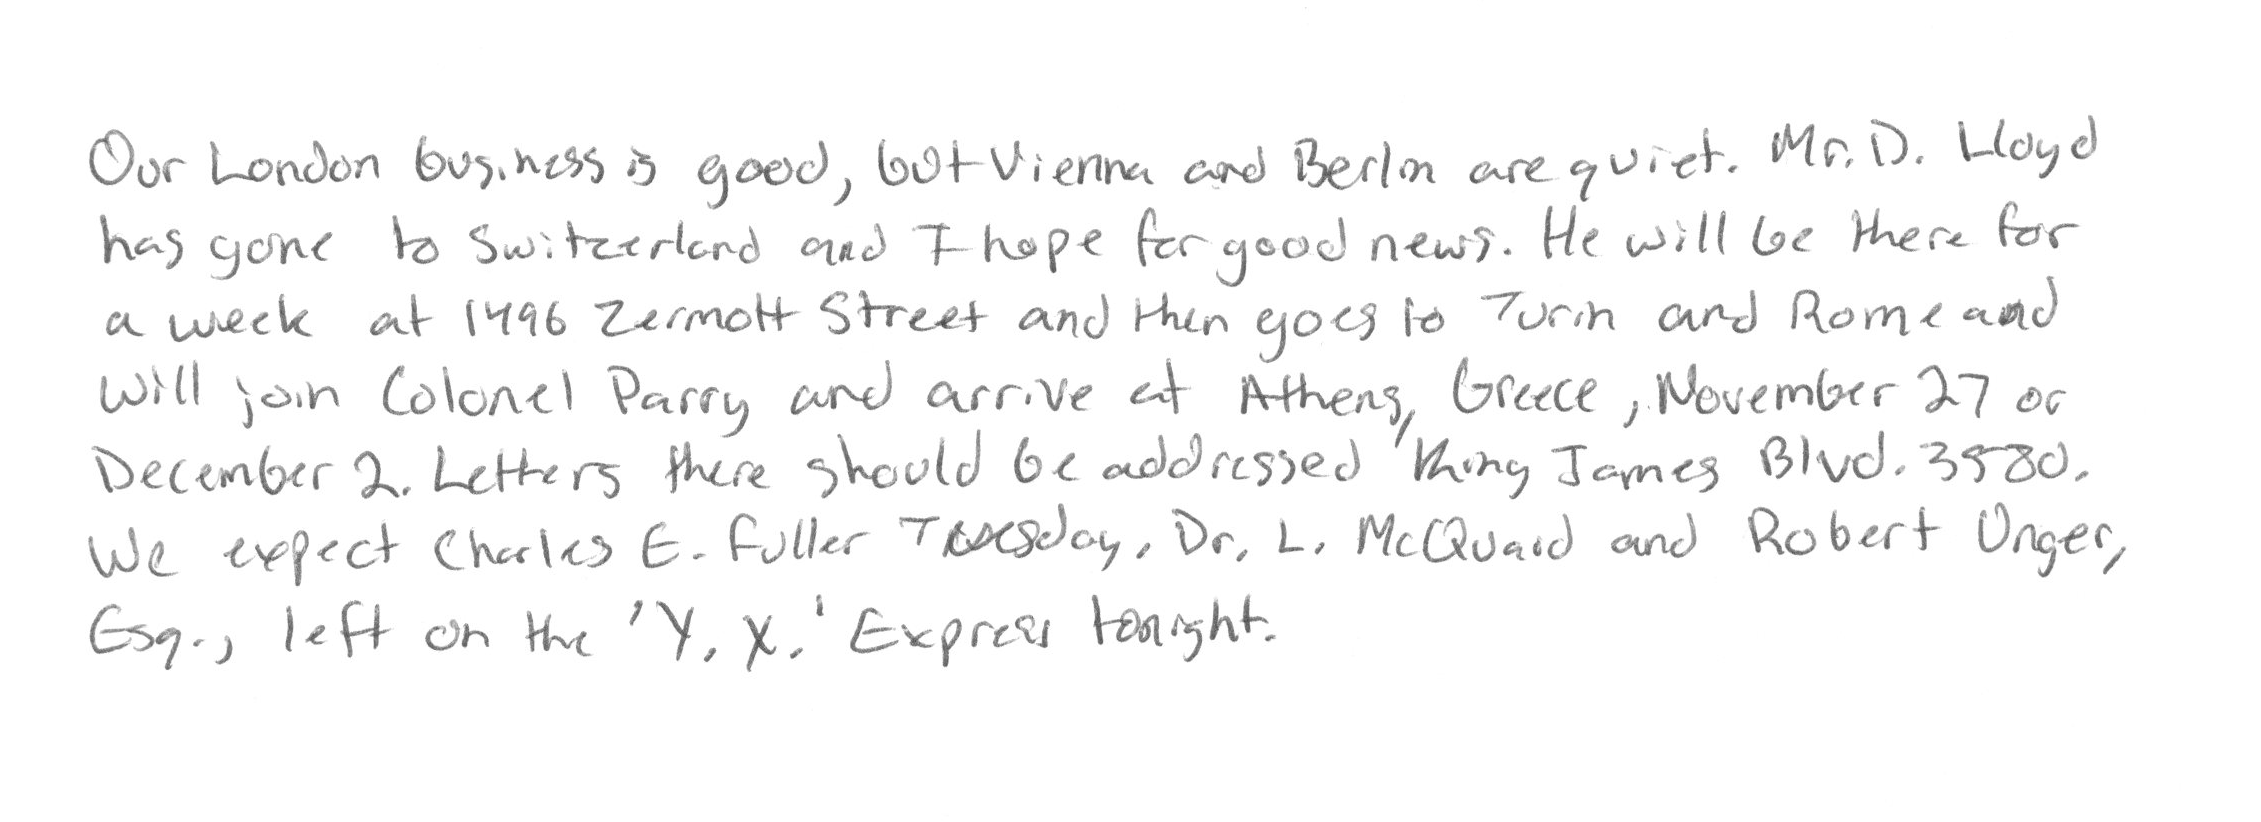 Our London business is good, but Vienna and Berlin are quiet. Mr. D. Lloyd
has gone to Switzerland and I hope for good news. He will be there for
a week at 1496 Zermott Street and then goes to Turin and Rome and
will join Colonel Parry and arrive at Athens, Greece, November 27 or
December 2. Letters there should be addressed 'King James Blvd. 3580.
We expect Charles E. Fuller Tuesday. Dr. L. McQuaid and Robert Unger,
Esq., left on the 'Y. X.' Express tonight.